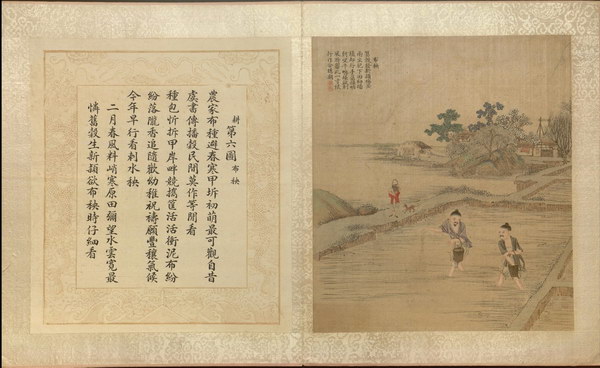 耕 第六圖 布秧
農家布種避春寒甲坼初萌最可觀自昔
虞書傳播穀民間莫作等閒看
種包忻拆甲岸畔競携筐活活衝泥布紛
紛落隴香追隨歡幼稚祝禱願豐穰氣候
今年早行看刺水秧
二月春風料峭寒原田彌望水雲寬最
憐舊穀生新穎欲布秧時仔細看
布秧